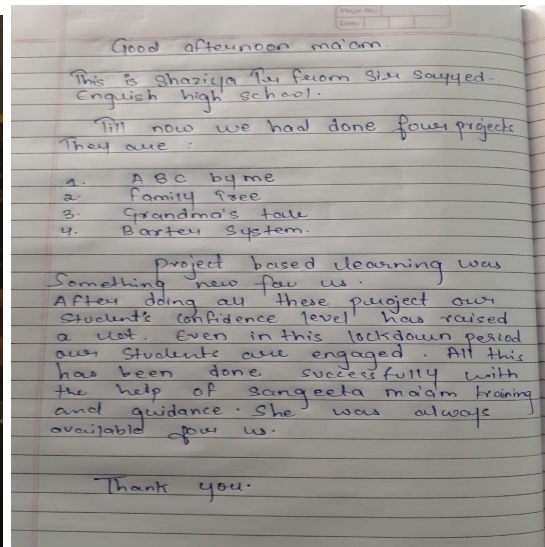 Page No.
Date
Good afternoon ma'am.
This is Shaziya Tr from Sir Sayyed
English high school.
Till now we had done four projects
They are :
1. A B C by me
2. Family Tree
3. Grandma's tale
4. Barter System.
Project based learning was
Something new for us.
After doing all these project our
Student's confidence level has raised
a lot. Even in this lockdown period
our Students are engaged. All this
has been done successfully with
the help of Sangeeta ma'am training
and guidance. She was always
available for us.
Thank you.